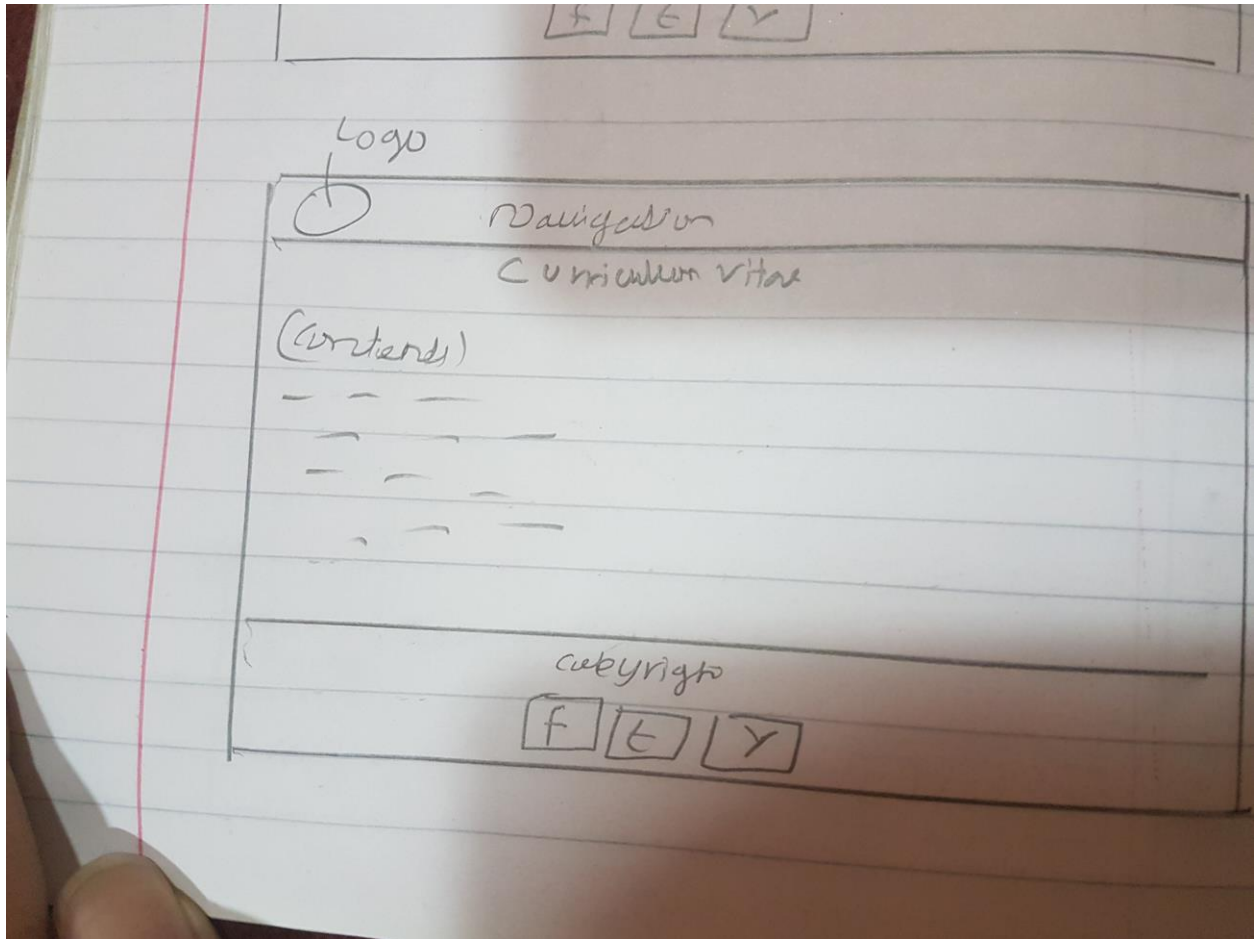 f t y
Logo
Navigation
Curriculum vitae
(contends)
copyright
f t y